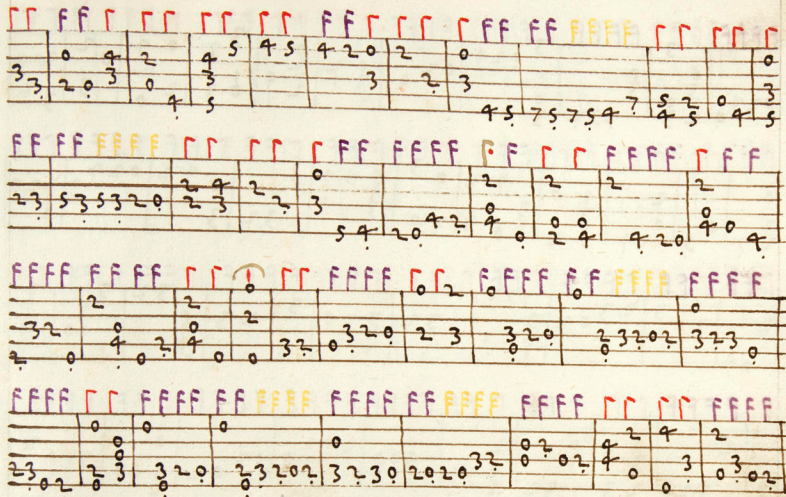 3 3 0 2 0 4 3 2 0 4 4 3 5 5 4 5 4 2 0 3 2 2 0 3 4 5 7 5 7 5 4 7 5 4 2 5 0 4 0 3 5
2 3 5 3 5 3 2 0 2 2 4 3 2 2 0 3 5 4 2 0 4 2 2 0 4 0 2 0 2 0 4 2 4 2 0 2 0 4 0 4
2 3 2 0 2 0 4 0 2 2 0 4 0 0 2 0 3 2 0 3 2 0 0 2 2 3 0 3 0 2 0 0 2 0 3 2 0 2 0 3 2 3 0
2 3 0 2 0 2 0 0 0 3 0 3 0 2 0 0 2 0 3 2 0 2 0 3 2 3 0 2 0 2 0 3 2 0 0 2 0 2 4 4 2 0 4 0 3 2 0 3 0 2